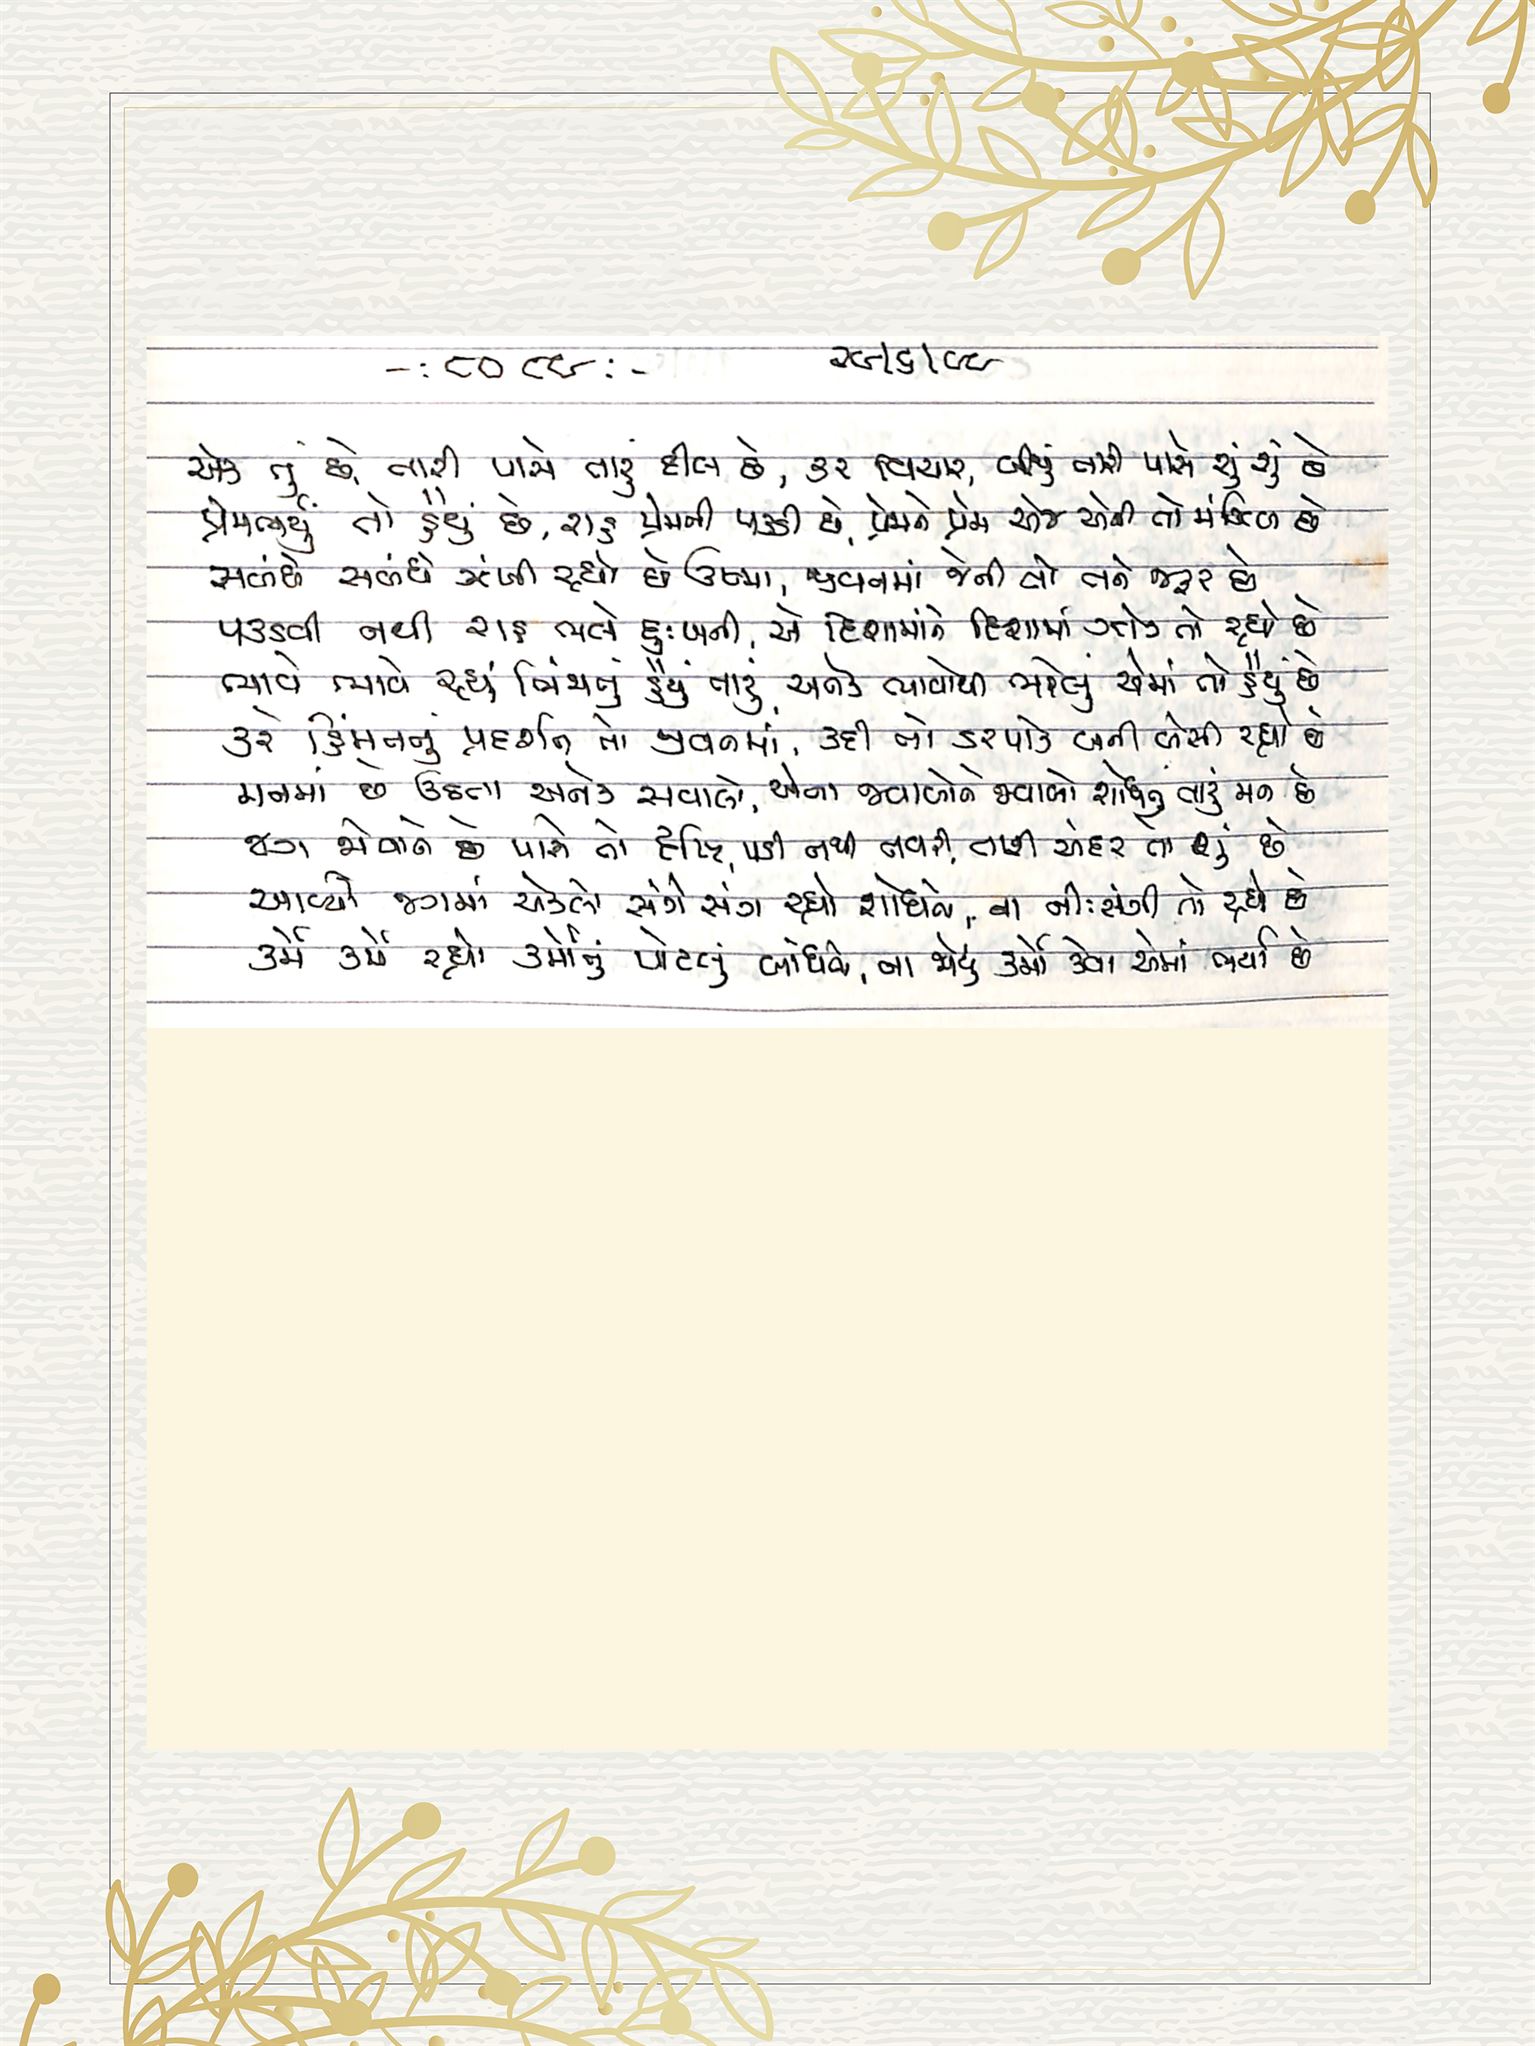 -: ૮૦ ૮૯ :- ૨૯/૬/૯૯
એક તું છે, તારી પાસે તારું દીલ છે, કર વિચાર, બીજું તારી પાસે શું શું છે
પ્રેમભર્યું તો હૈયું છે, રાહ પ્રેમની પકડી છે, પ્રેમને પ્રેમ એજ એની તો મંઝિલ છે
સબંધે સબંધે ઝંખી રહ્યો છે ઉષ્મા, જીવનમાં જેની તો તને જરૂર છે
પકડવી નથી રાહ ભલે દુઃખની, એ દિશામાંને દિશામાં ઝોક તો રહ્યો છે
ભાવે ભાવે રહ્યું ખિંચાતું હૈયું તારું, અનેક ભાવોથી ભરેલું એમાં તો હૈયું છે
કરે હિંમતનું પ્રદર્શન તો જીવનમાં, કદી તો ડરપોક બની બેસી રહ્યો છે
મનમાં છે ઉઠતા અનેક સવાલો, એના જવાબોને જવાબો શોધતું તારું મન છે
જગ જોવાને છે પાસે તો દૃષ્ટિ, પડી નથી નવરી, તારી અંદર તો શું છે
આવ્યો જગમાં એકલો સંગે સંગ રહ્યો શોધતો, ના નીઃસંગી તો રહ્યો છે
કર્મે કર્મે રહ્યો કર્મોનું પોટલું બાંધતો, ના જોયું કર્મો કેવા એમાં ભર્યા છે